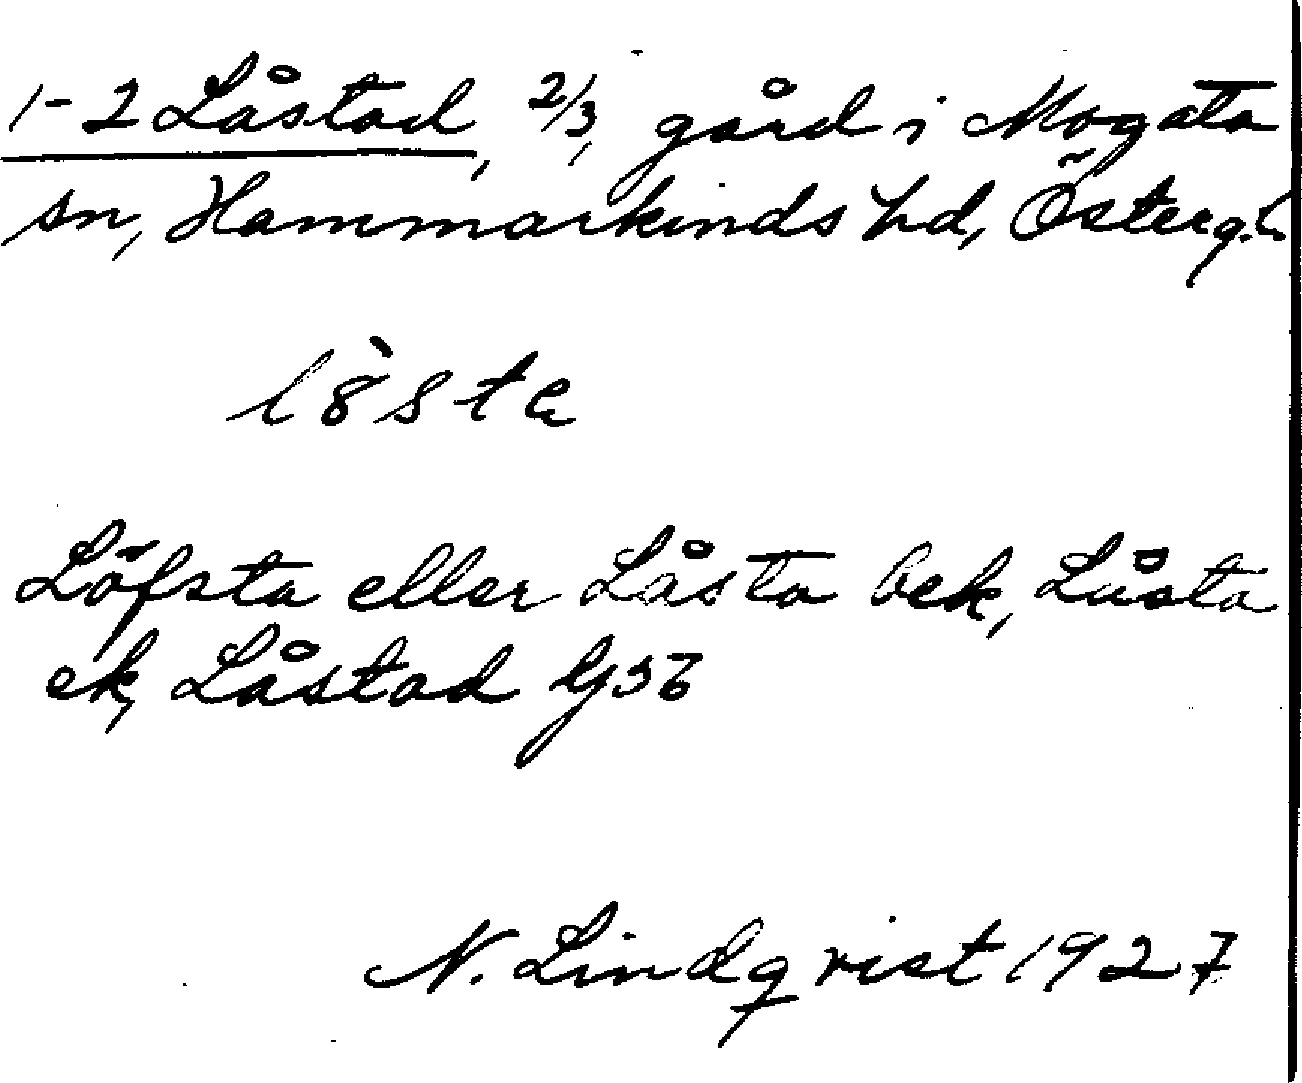 1-2 Låstad, 2/3, gård i Mogata
sn, Hammarkinds hd, Österg.l.
l8̀sta
Löfsta eller Låsta bek, Låsta
ek, Låstad G 36
N. Lindqvist 1927